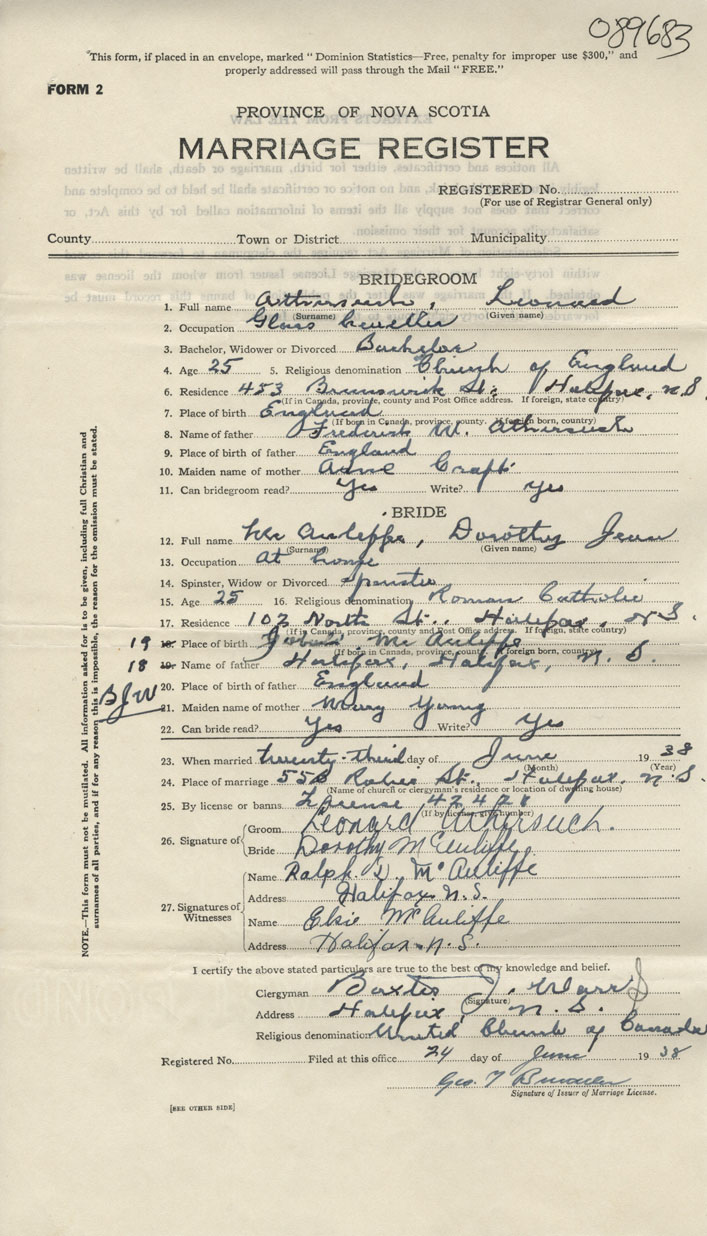 089683
"This form, if placed in an envelope, marked "Dominion Statistics—Free, penalty for improper use $300," and
properly addressed will pass through the Mail "FREE."
FORM 2
PROVINCE OF NOVA SCOTIA
MARRIAGE REGISTER
REGISTERED No.
(For use of Registrar General only)
County Town or District Municipality
BRIDEGROOM
1. Full name Athersuch, Leonard
(Surname) (Given name)
2. Occupation Glass beveller
3. Bachelor, Widower or Divorced Bachelor
4. Age 25 5. Religious denomination Church of England
6. Residence 453 Brunswick St. Halifax, N.S.
(If in Canada, province, county and Post Office address. If foreign, state country)
7. Place of birth England
(If born in Canada, province, county. If foreign born, country)
8. Name of father Frederick W. Athersuch
9. Place of birth of father England
10. Maiden name of mother Anne Craft
11. Can bridegroom read? Yes Write? Yes
BRIDE
12. Full name Mc Auliffe, Dorothy Jean
(Surname) (Given name)
13. Occupation At home
14. Spinster, Widow or Divorced Spinster
15. Age 25 16. Religious denomination Roman Catholic
17. Residence 107 North St., Halifax, N.S.
(If in Canada, province, county and Post Office address. If foreign, state country)
19 18. Place of birth Mc Auliffe
(If born in Canada, province, county. If foreign born, country)
18 19. Name of father Halifax, Halifax, N.S.
BJW
20. Place of birth of father England
21. Maiden name of mother Mary Young
22. Can bride read? Yes Write? Yes
23. When married twenty-third day of June 1938
(Month) (Year)
24. Place of marriage 55 Robie St., Halifax, N.S.
(Name of church or clergyman's residence or location of dwelling house)
25. By license or banns License 42421
(If by license, give number)
26. Signature of Groom Leonard Athersuch.
Bride Dorothy McAuliffe
27. Signatures of Witnesses Name Ralph D. McAuliffe
Address Halifax N.S.
Name Elsie McAuliffe
Address Halifax N.S.
I certify the above stated particulars are true to the best of my knowledge and belief.
Clergyman J.
(Signature)
Address Halifax N.S.
Religious denomination United Church of Canada
Registered No. Filed at this office 24 day of June 1938
Geo.
Signature of Issuer of Marriage License.
[SEE OTHER SIDE]
NOTE.—This form must not be mutilated. All information asked for is to be given, including full Christian and
surnames of all parties, and if for any reason this is impossible, the reason for the omission must be stated.